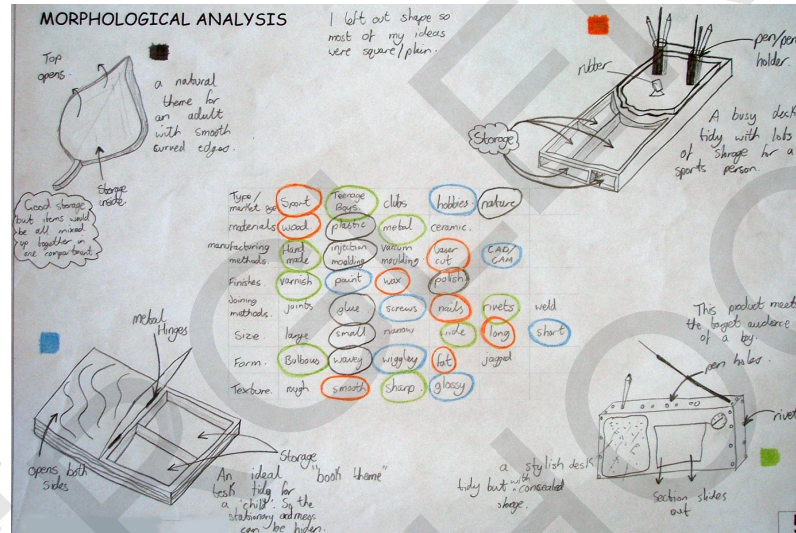 MORPHOLOGICAL ANALYSIS
I left out shape so
most of my ideas
were square/plain.
Top
opens.
a natural
theme for
an adult
with smooth
curved edges.
Storage
inside.
Good storage
but items would
be all mixed
up together in
one compartment.
rubber
pen/pen
holder.
Storage
A busy desk
tidy with lots
of storage for a
sports person.
Type/ market Sport Teenage Boys. clubs hobbies nature
materials wood plastic metal ceramic.
manufacturing methods. Hand made injection moulding vacuum moulding. laser cut CAD/CAM
Finishes varnish paint wax polish
Joining methods. joints glue screws nails rivets weld
Size. large small narrow wide long short
Form. Bulbous wavey wiggley fat jagged
Texture. rough smooth sharp. glossy
metal
Hinges
opens both
sides
Storage
An ideal "book theme"
desk tidy for
a 'child'. So the
stationary and mess
can be hiden.
This product meets
the target audience
of a boy.
pen holes.
rivet
a stylish desk
tidy but with concealed
storage.
Section slides
out